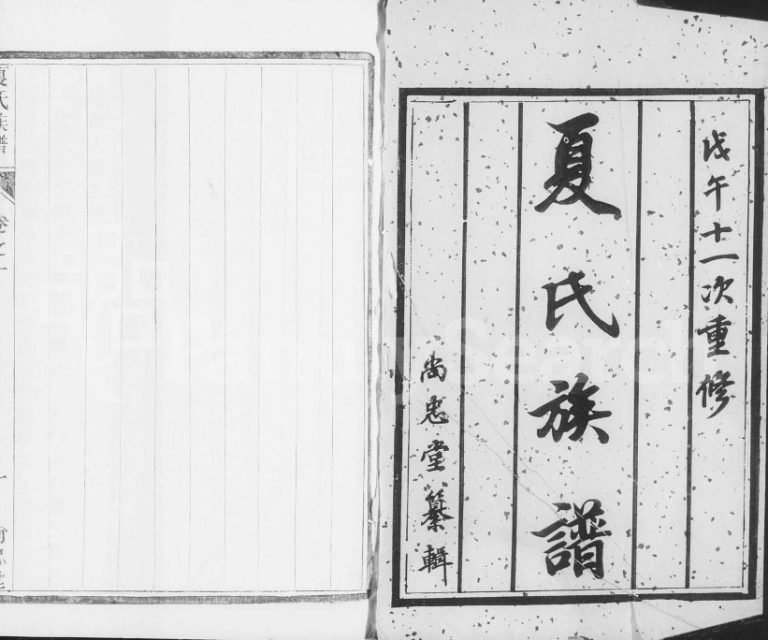 戊午十一次重修
夏氏族譜
尚忠堂纂輯
夏氏族譜
卷之一
FamilySearch